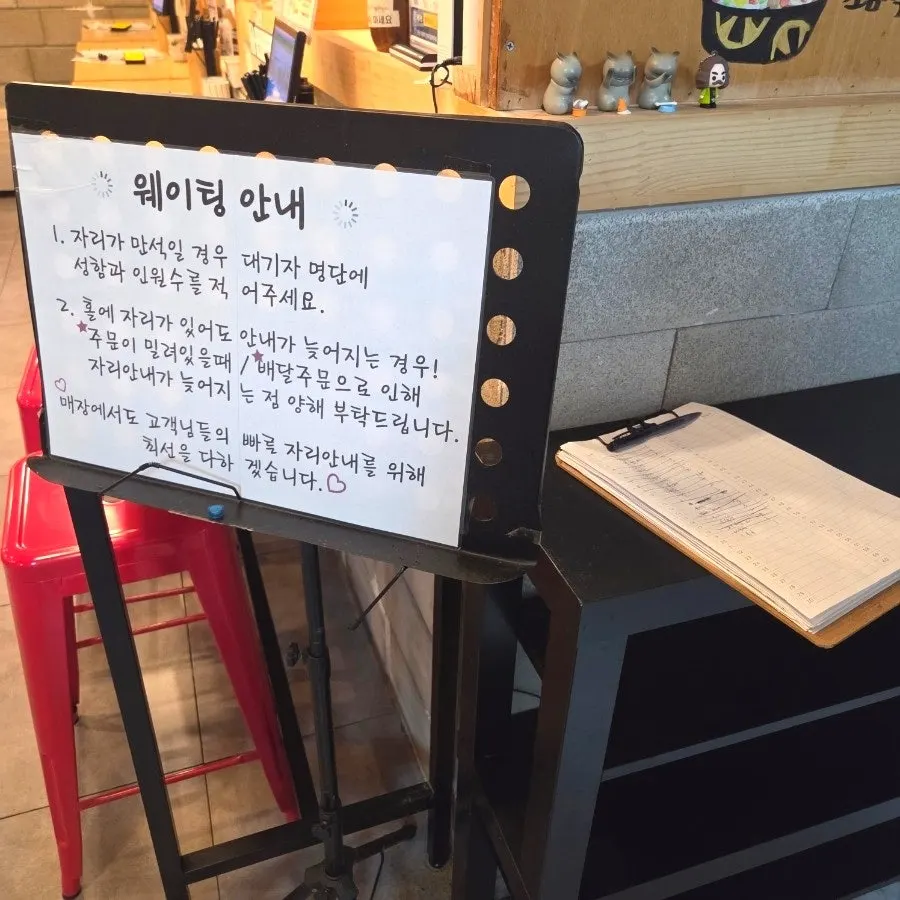 마세요
웨이팅 안내
1. 자리가 만석일 경우 대기자 명단에
성함과 인원수를 적 어주세요.
2. 홀에 자리가 있어도 안내가 늦어지는 경우!
주문이 밀려있을때 / 배달주문으로 인해
자리안내가 늦어지 는 점 양해 부탁드립니다.
매장에서도 고객님들의 빠른 자리안내를 위해
최선을 다하 겠습니다.